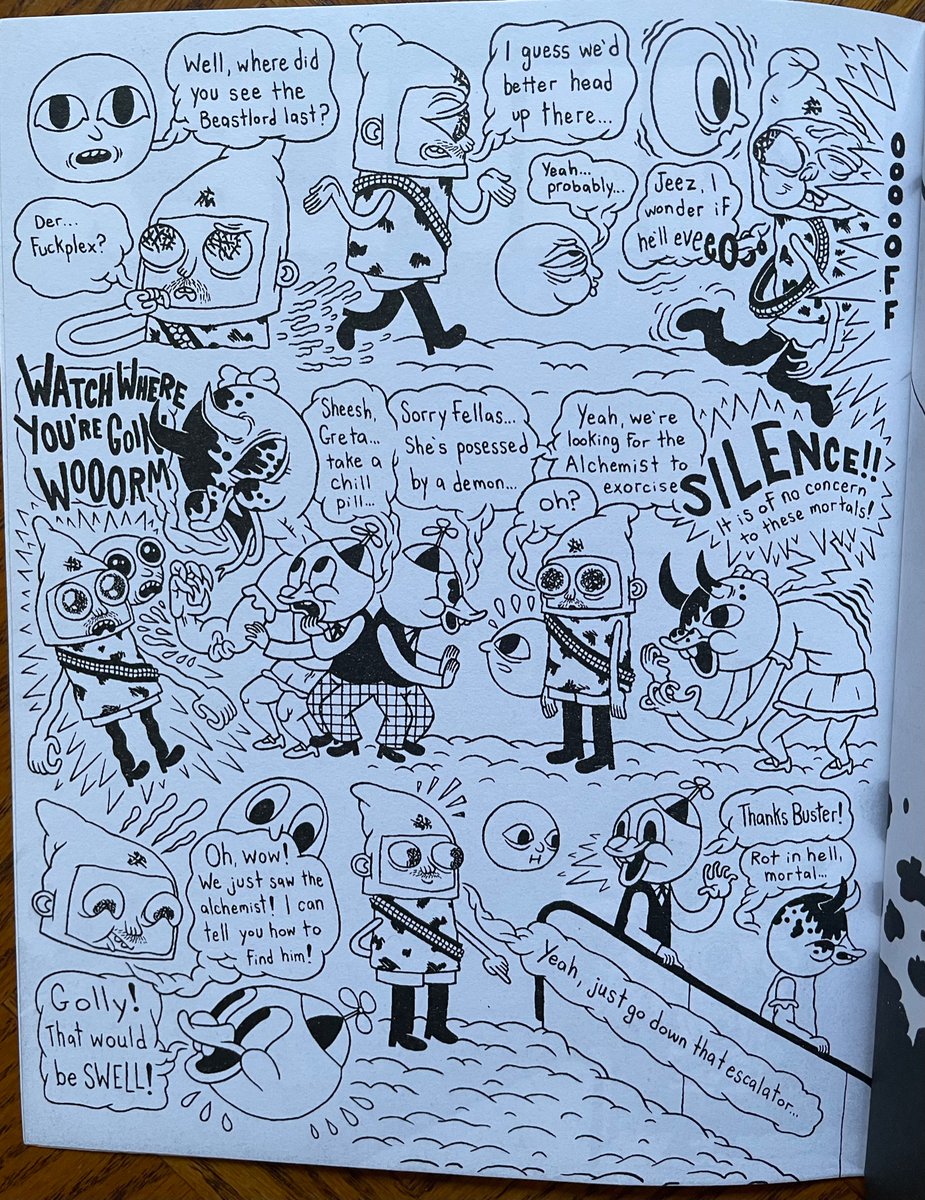 Well, where did
you see the
Beastlord last?
Der...
Fuckplex?
I guess we'd
better head
up there...
Yeah...
probably...
Jeez, I
wonder if
he'll eveeOOo
OOOOOFF
WATCH WHERE
YOU'RE GOIN
WOOORM
Sheesh,
Greta...
take a
chill
pill...
Sorry Fellas...
She's posessed
by a demon...
Oh?
Yeah, we're
looking for the
Alchemist to
exorcise
SILENCE!!
It is of no concern
to these mortals!
Oh, wow!
We just saw the
alchemist! I can
tell you how to
find him!
Golly!
That would
be SWELL!
Yeah, just go down that escalator...
Thanks Buster!
Rot in hell,
mortal...